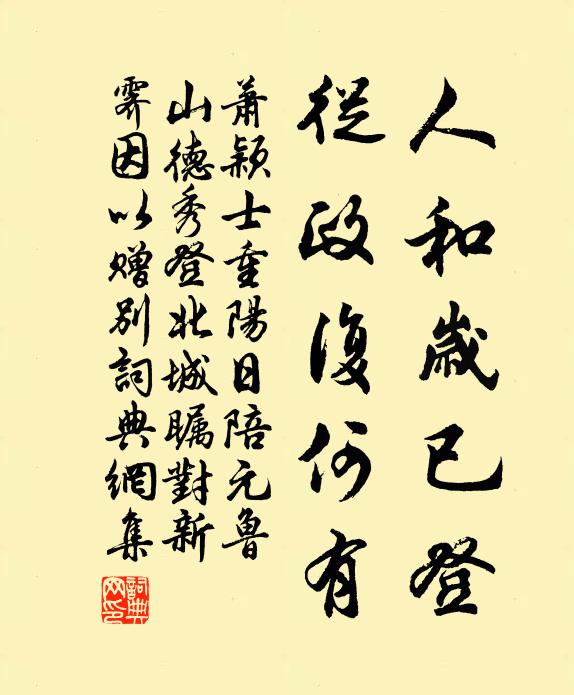 人和歲已登
從政復何有
蕭穎士重陽日陪元魯
山德秀登北城矚對新
霽因以贈別詞典網集